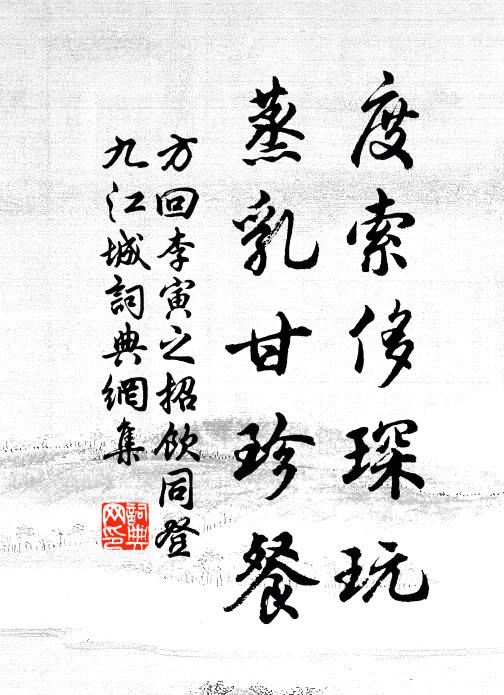 度索侈琛玩
蒸乳甘珍餐
方回李寅之招飲同登
九江城詞典網集
詞典
网印